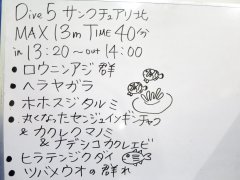 Dive5 サンクチュアリ北
MAX 13m TIME 40分
in 13:20 ~ out 14:00
• ロウニンアジ 群
• ヘラヤガラ
• ホホスジタルミ
• 丸くなったセンジュイソギンチャク
& カクレクマノミ
& ナデシコカクレエビ
• ヒラテンジクダイ
• ツバメウオの群れ